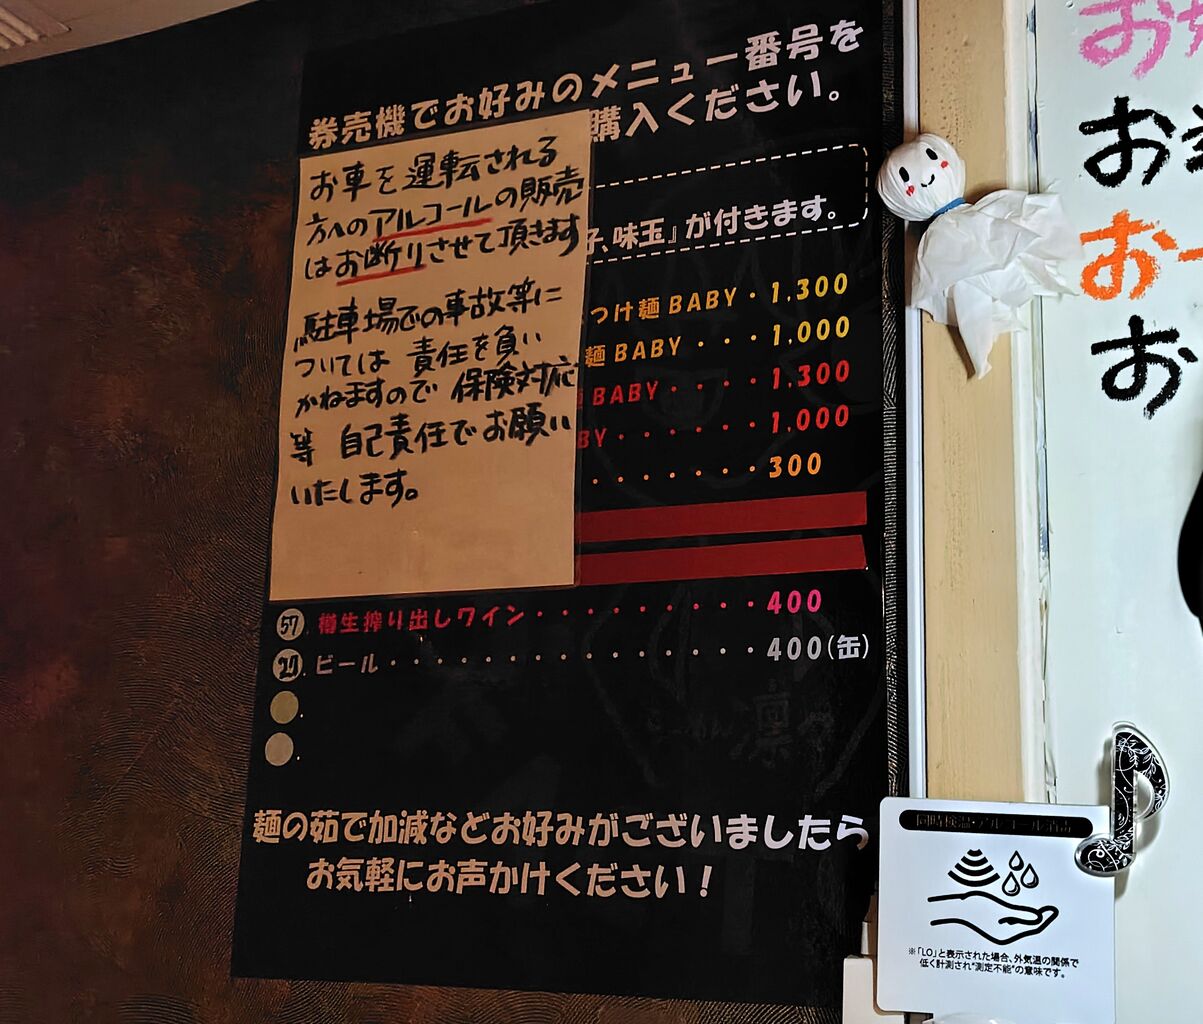 券売機でお好みのメニュー番号を
購入ください。
お車を運転される
方へのアルコールの販売
はお断りさせて頂きます
駐車場での事故等に
ついては 責任を負い
かねますので 保険対応
等 自己責任でお願い
いたします。
子、味玉』が付きます。
つけ麺BABY・1,300
麺BABY・・・1,000
BABY・・・・1,300
BY・・・・・・1,000
・・・・・・・300
57. 樽生搾り出しワイン・・・・・・・・・・400
20. ビール・・・・・・・・・・・・・・・400(缶)
麺の茹で加減などお好みがございましたら
お気軽にお声かけください!
凛
お
お
お
お
同時検温・アルコール消毒
※「LO」と表示された場合、外気温の関係で
低く計測され"測定不能"の意味です。